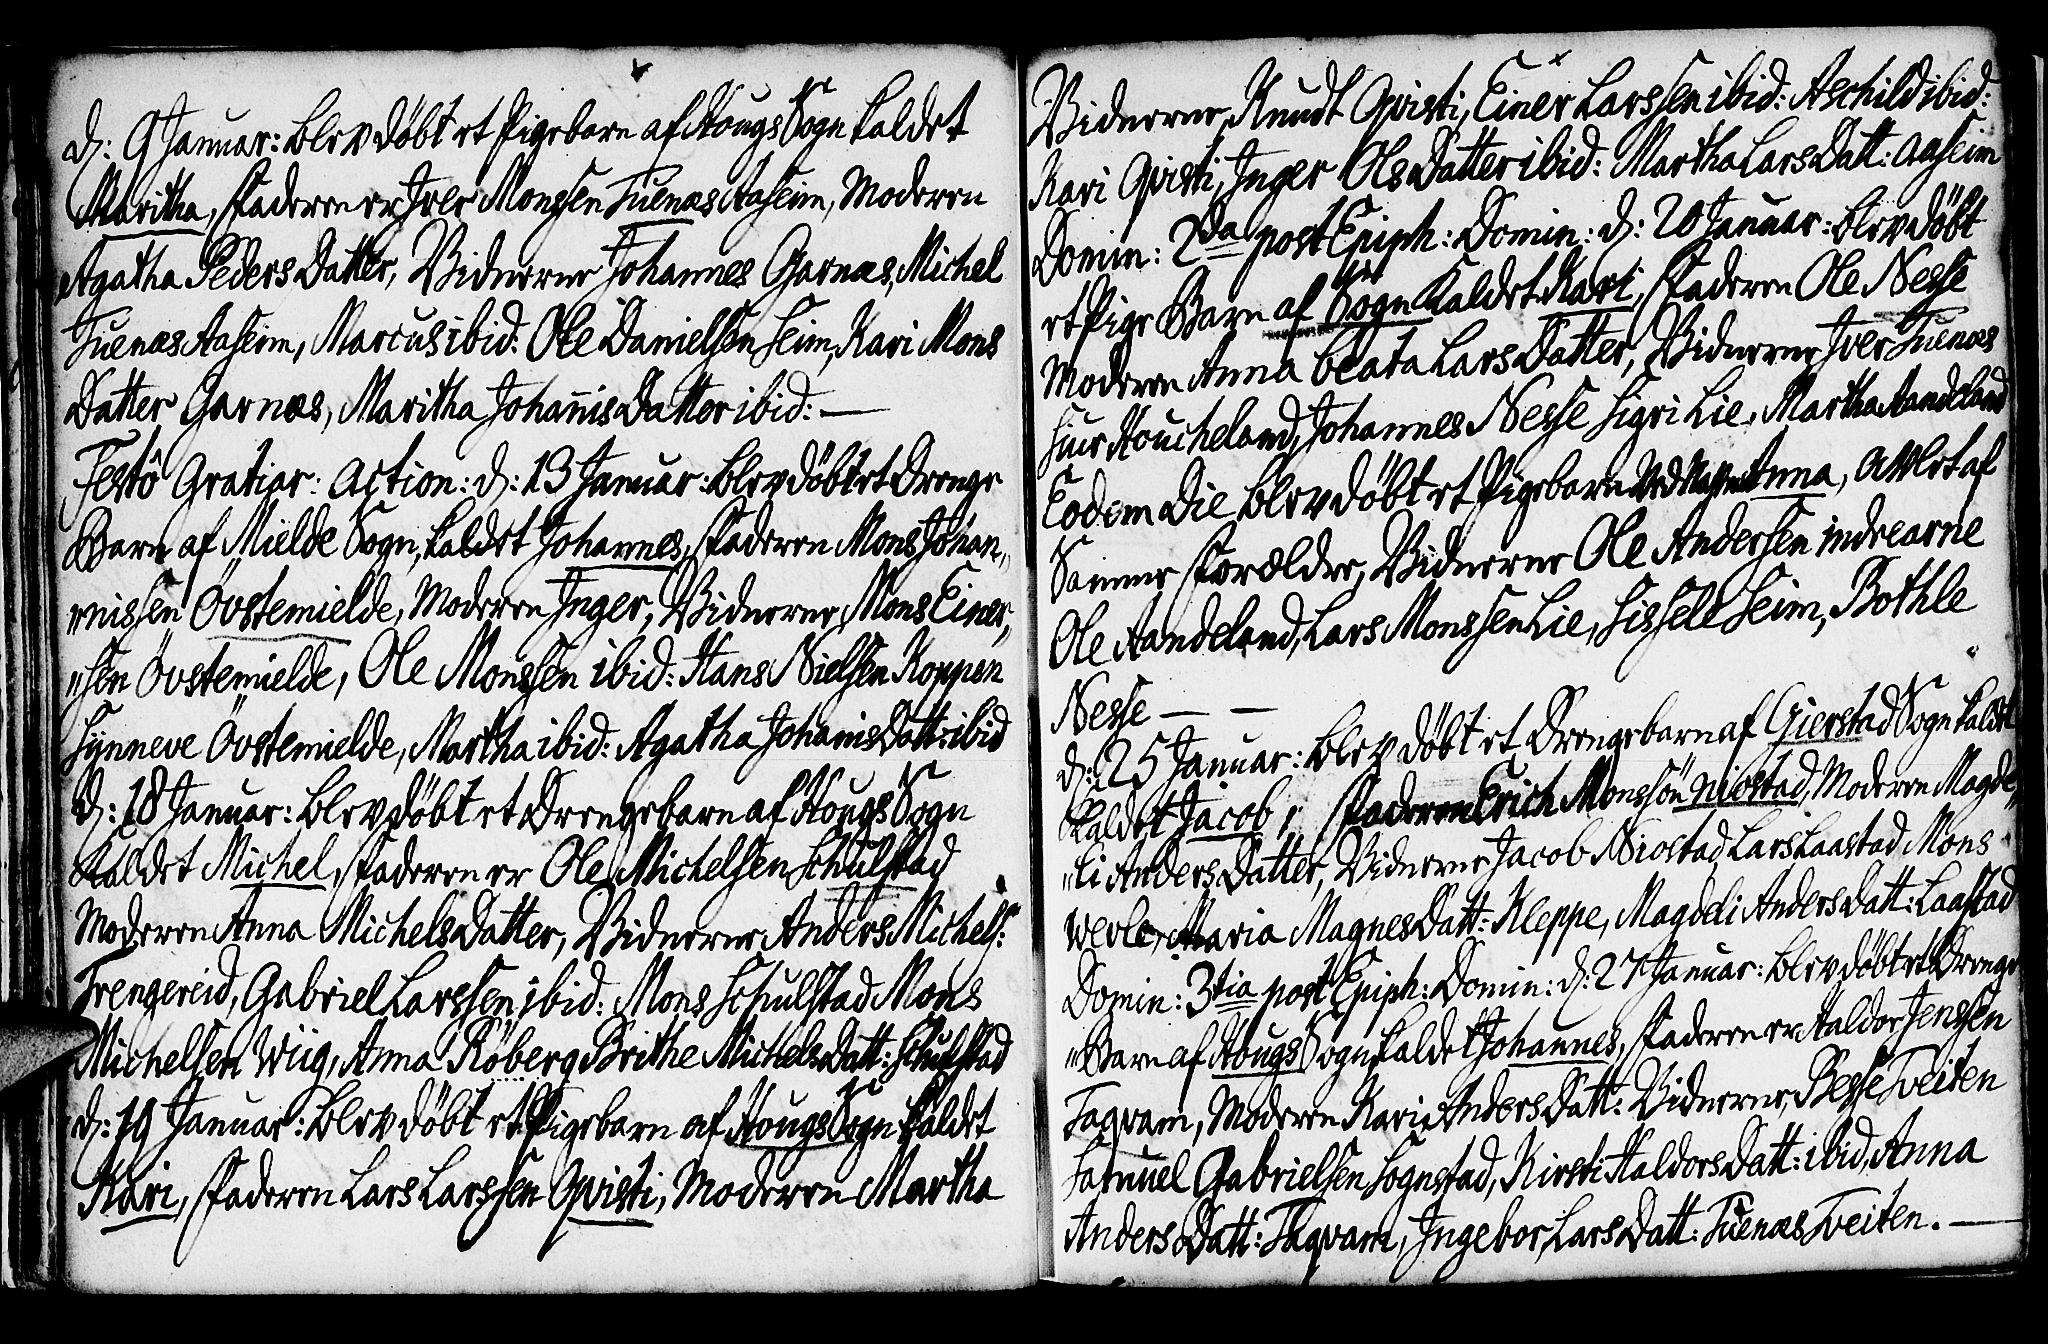 d: 9 Januar: blev döbt et Pigebarn af Hougs Sogn kaldet
Maritha, Faderen er Iver Monssen Tuenæs Aaseim, Moderen
Agatha Peders Datter, Vidnerne Johannes Garnæs, Michel
Tuenæs Aaseim, Marcus ibid: Ole Danielssen Seim, Kari Mons
Datter Garnæs, Maritha Johañis Datter ibid: —
Festô Gratiar: action: d: 13 Januar: blev döbt et Drenge
Barn af Mielde Sogn, kaldet Johannes, Faderen Mons Johan„
„nissen Övstemielde, Moderen Inger, Vidnerne, Mons Einer„
„sen Övstemielde, Ole Monssen ibid: Hans Nielsen Koppen
Synneve Övstemielde, Martha ibid: Agatha Johanis Datt: ibid
d: 18 Januar: blev döbt et Drengebarn af Hougs Sogn
Kaldet Michel, Faderen er Ole Michelsen Schulstad
Moderen Anna Michels Datter, Vidnerne Anders Michels:
Trengereid, Gabriel Larssen ibid: Mons Schulstad Mons
Michelsen Wiig, Anna Röberg Brithe Michels Datt: Schulstad
d: 19 Januar: blev döbt et Pigebarn af Hougs Sogn kaldet
Kari, Faderen Lars Larssen Qvisti, Moderen Martha
Vidnerne, Knudt Qvisti, Einer Larssen ibid: Aschild ibid:
Kari Qvisti, Inger Ols Datter ibid: Martha Lars Datt: Aaseim
Domin: 2da post Epiph: Domin: d: 20 Januar: blev döbt
et Pige Barn af Sogn Kaldet Kari, Faderen Ole Nesse
Moderen Anna beata Lars Datter, Vidnerne Iver Tuenæs
Siur Houcheland, Johannes Nesse Sigri Lie, Martha Aandeland
Eodem Die blev döbt et Pigebarn ved Nafn Anna, avlet af
Samme Forældre, Vidnerne Ole Andersen indrearne
Ole Aandeland, Lars Monssen Lie, Sissele Seim, Bothle
Nesse — —
d: 25 Januar: blev döbt et Drengebarn af Gierstad Sogn kaldet
Kaldet Jacob, Faderen Erich Monssön Niostad, Moderen Magde„
„li Anders Datter, Vidnerne Jacob Niostad Lars Laastad Mons
Werle, Maria Magnes Datt: Kleppe, Magdeli Anders Datt: Laastad
Domin: 3tia post Epiph: Domin: d: 27 Januar: blev döbt et Drenge
„Barn af Hougs Sogn kaldet Johannes, Faderen er Haldor Jenssen
Faqvam, Moderen Kari Anders Datt: Vidnerne, Besse Tveiten
Samuel Gabrielsen Sognstad, Kirsti Haldors Datt: ibid, Anna
Anders Datt: Faqvam, Ingebor Lars Datt: Tuenæs Tveiten. —